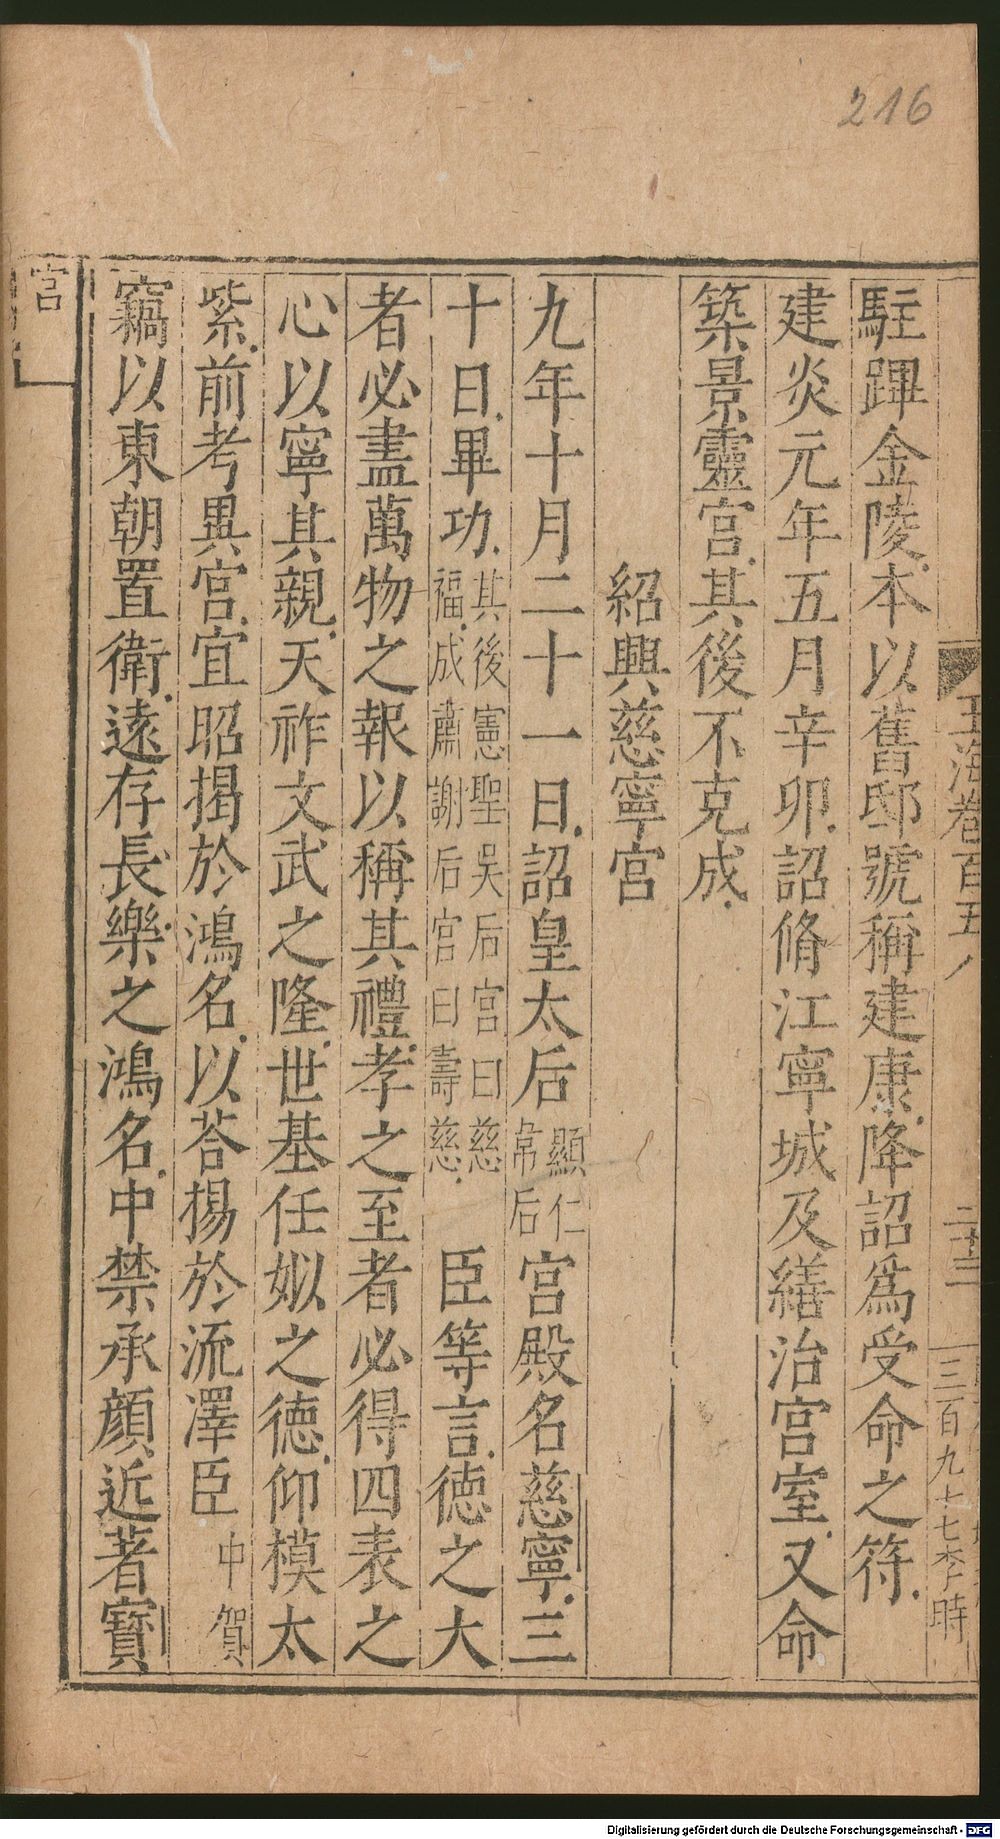 216
玉海卷百五
二十三
三百九十七 李時
駐蹕金陵本以舊邸號稱建康降詔爲受命之符
建炎元年五月辛卯詔脩江寧城及繕治宮室又命
築景靈宮其後不克成
紹興慈寧宮
九年十月二十一日詔皇太后顯仁韋后宮殿名慈寧三
十日畢功其後憲聖吳后宮曰慈福成肅謝后宮曰壽慈 臣等言德之大
者必盡萬物之報以稱其禮孝之至者必得四表之
心以寧其親天祚文武之隆世基任姒之德仰模太
紫前考異宮宜昭揭於鴻名以荅揚於流澤臣中賀
竊以東朝置衛遠存長樂之鴻名中禁承顏近著寶
宮
Digitalisierung gefördert durch die Deutsche Forschungsgemeinschaft - DFG